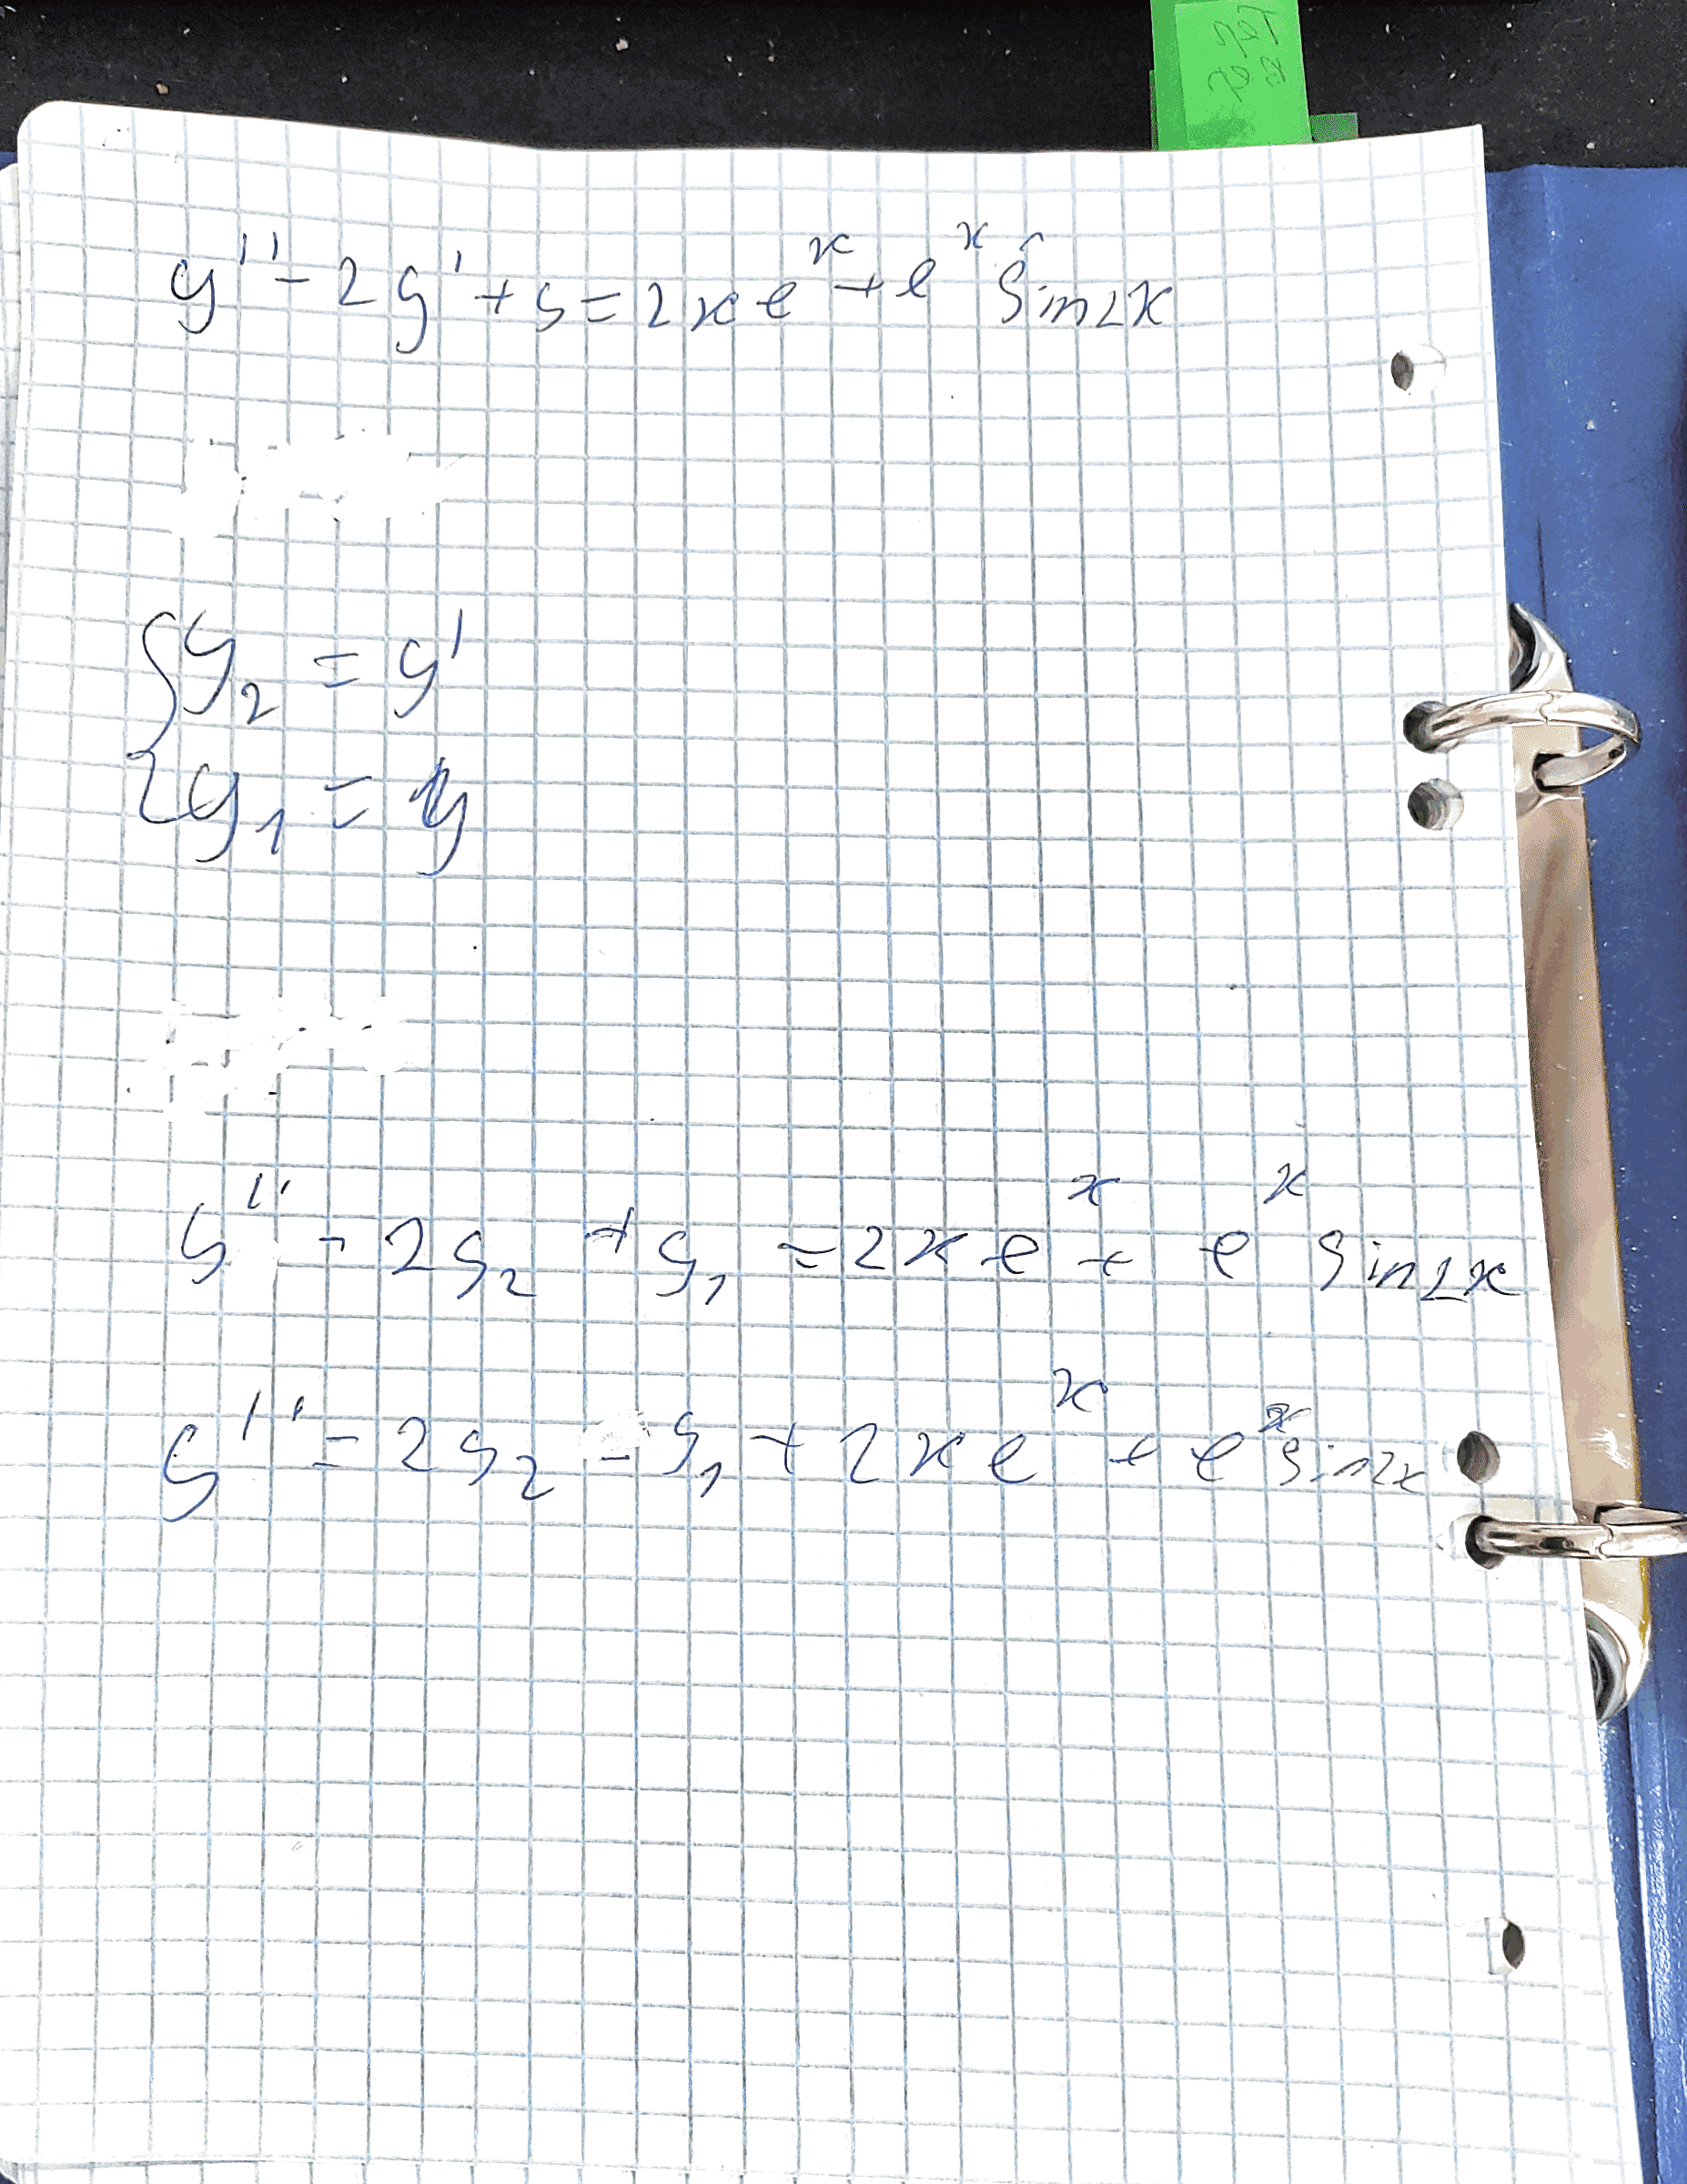 y'' - 2y' + y = 2xe^x + e^x sin2x
{ y_2 = y'
y_1 = y
y'' - 2y_2 + y_1 = 2xe^x + e^x sin2x
y'' = 2y_2 - y_1 + 2xe^x + e^x sin2x